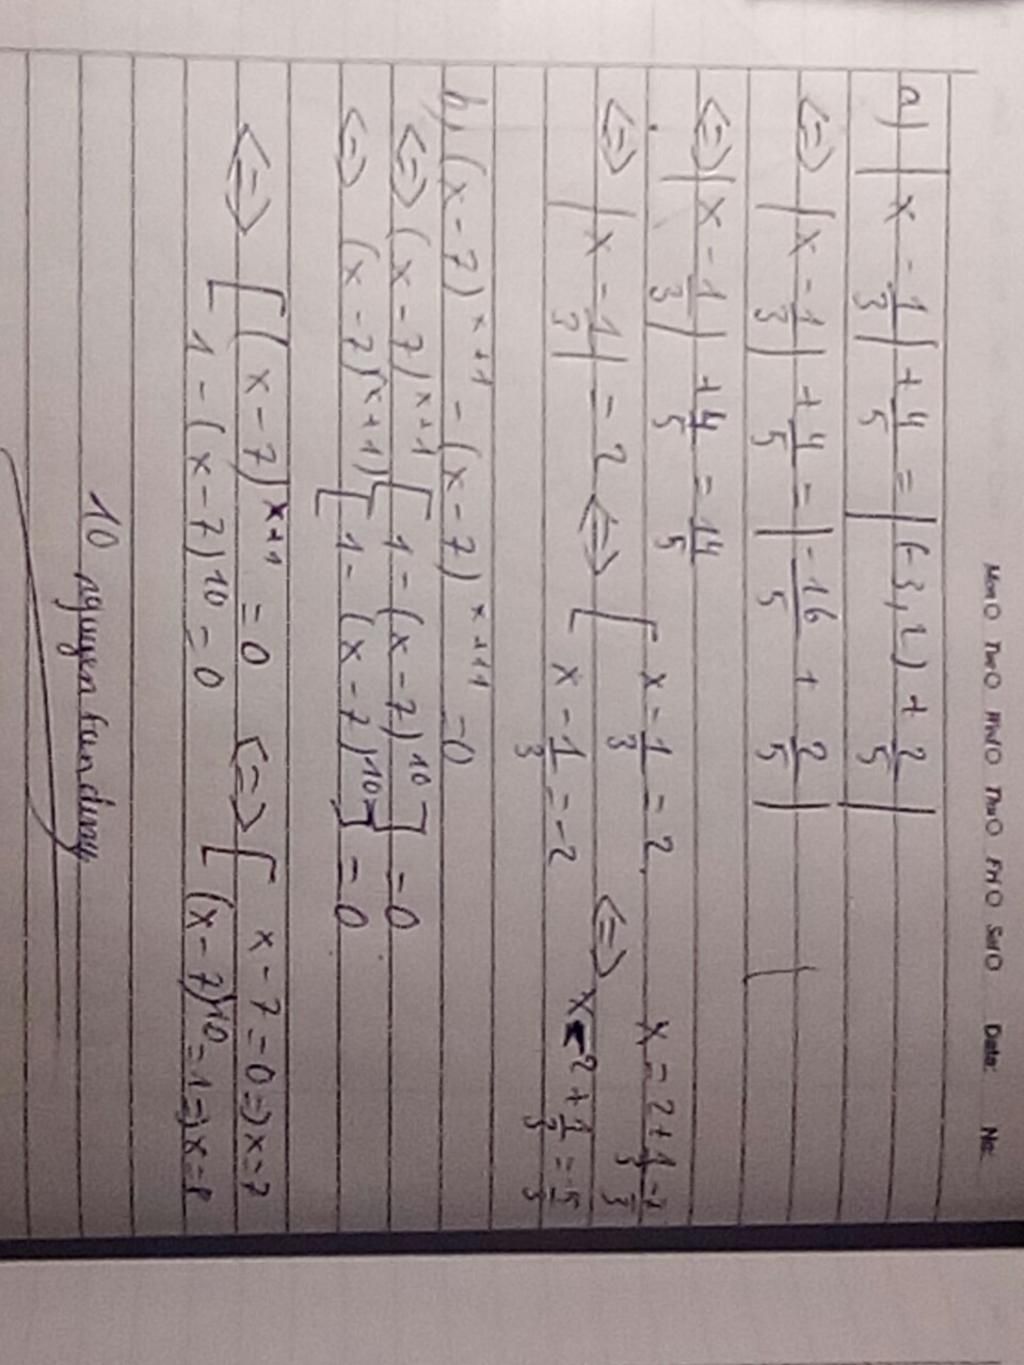 Mon O Tue O Wed O Thu O Fri O Sat O Date: No:
a) |x - 1/3| + 4/5 = |(-3,2) + 2/5|
<=> |x - 1/3| + 4/5 = |-16/5 + 2/5|
<=> |x - 1/3| + 4/5 = 14/5
<=> |x - 1/3| = 2 <=> [ x - 1/3 = 2 <=> x = 2 + 1/3 = 7/3
x - 1/3 = -2 x = -2 + 1/3 = -5/3
b) (x - 7)^x+1 - (x - 7)^x+11 = 0
<=> (x - 7)^x+1 [1 - (x - 7)^10] = 0
<=> (x - 7)^(x+1) [1 - (x - 7)^10] = 0
<=> [ (x - 7)^x+1 = 0 <=> [ x - 7 = 0 => x = 7
1 - (x - 7)^10 = 0 (x - 7)^10 = 1 => x = 8
10 nguyen